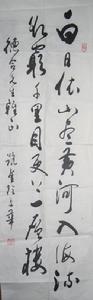 白日依山尽黄河入海流
欲窮千里目更上一層樓
先生雅正